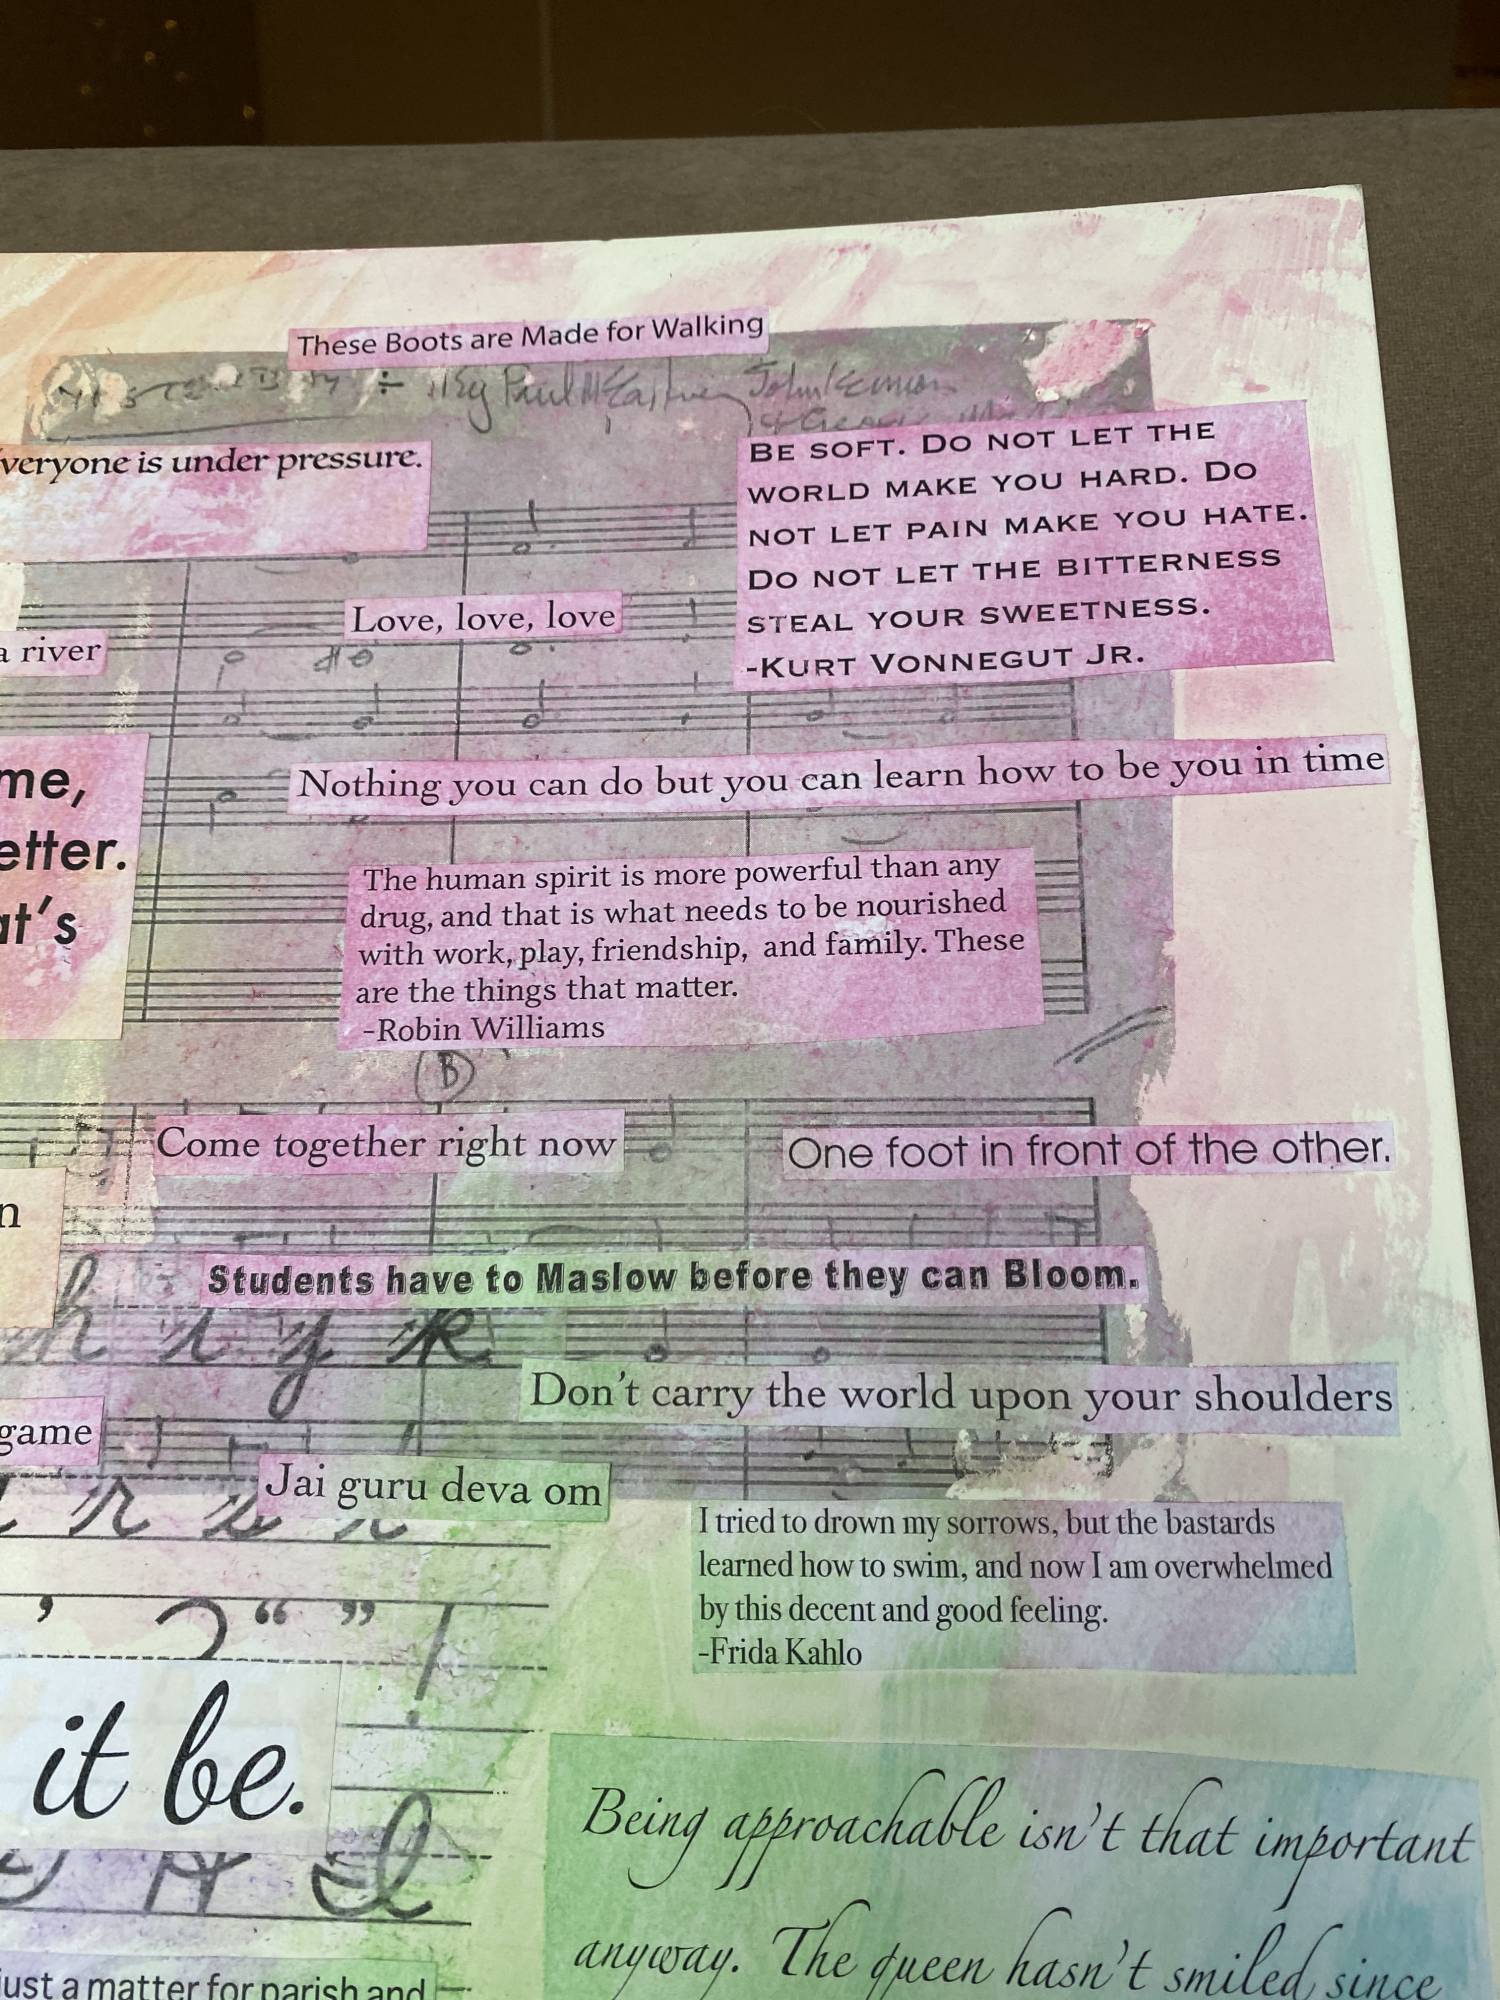 These Boots are Made for Walking
By Paul McCartney John Lennon
veryone is under pressure.
BE SOFT. DO NOT LET THE
WORLD MAKE YOU HARD. DO
NOT LET PAIN MAKE YOU HATE.
DO NOT LET THE BITTERNESS
STEAL YOUR SWEETNESS.
-KURT VONNEGUT JR.
Love, love, love
a river
me,
etter.
at's
Nothing you can do but you can learn how to be you in time
The human spirit is more powerful than any
drug, and that is what needs to be nourished
with work, play, friendship, and family. These
are the things that matter.
-Robin Williams
B
Come together right now
One foot in front of the other.
n
Students have to Maslow before they can Bloom.
h i j k
Don't carry the world upon your shoulders
game
Jai guru deva om
I tried to drown my sorrows, but the bastards
learned how to swim, and now I am overwhelmed
by this decent and good feeling.
-Frida Kahlo
, ? “ ” !
it be.
Being approachable isn't that important
anyway. The queen hasn't smiled since
just a matter for parish and